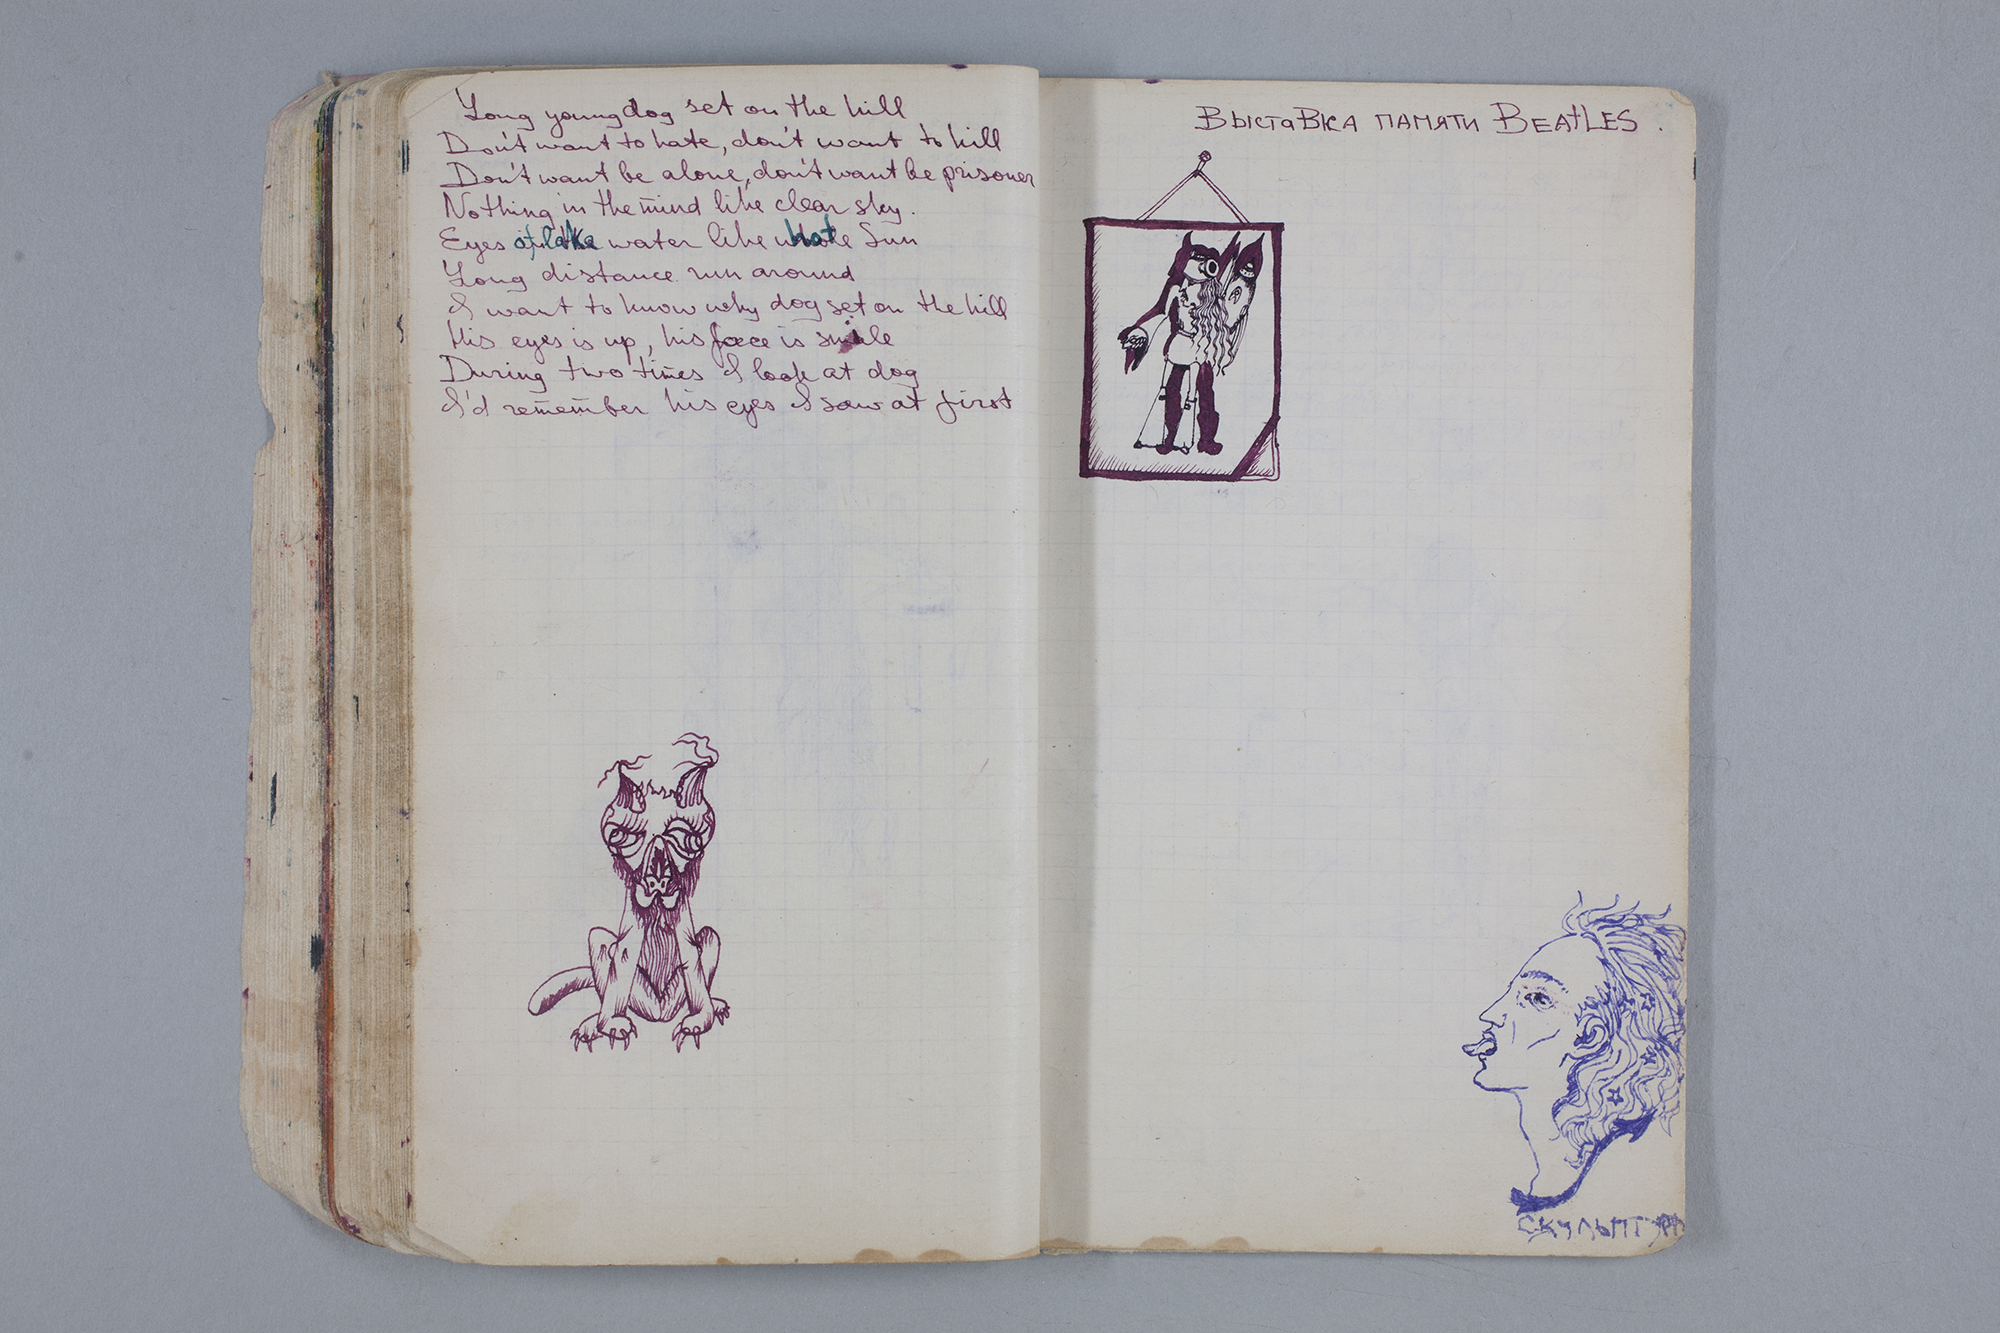 Long young dog set on the hill
Don't want to hate, don't want to kill
Don't want be alone, don't want be prisoner
Nothing in the mind like clear sky.
Eyes of lake water like hot Sun
Long distance run around
I want to know why dog set on the hill
His eyes is up, his face is smile
During two times I look at dog
I'd remember his eyes I saw at first
ВЫСТАВКА ПАМЯТИ BEATLES.
СКУЛЬПТУРА